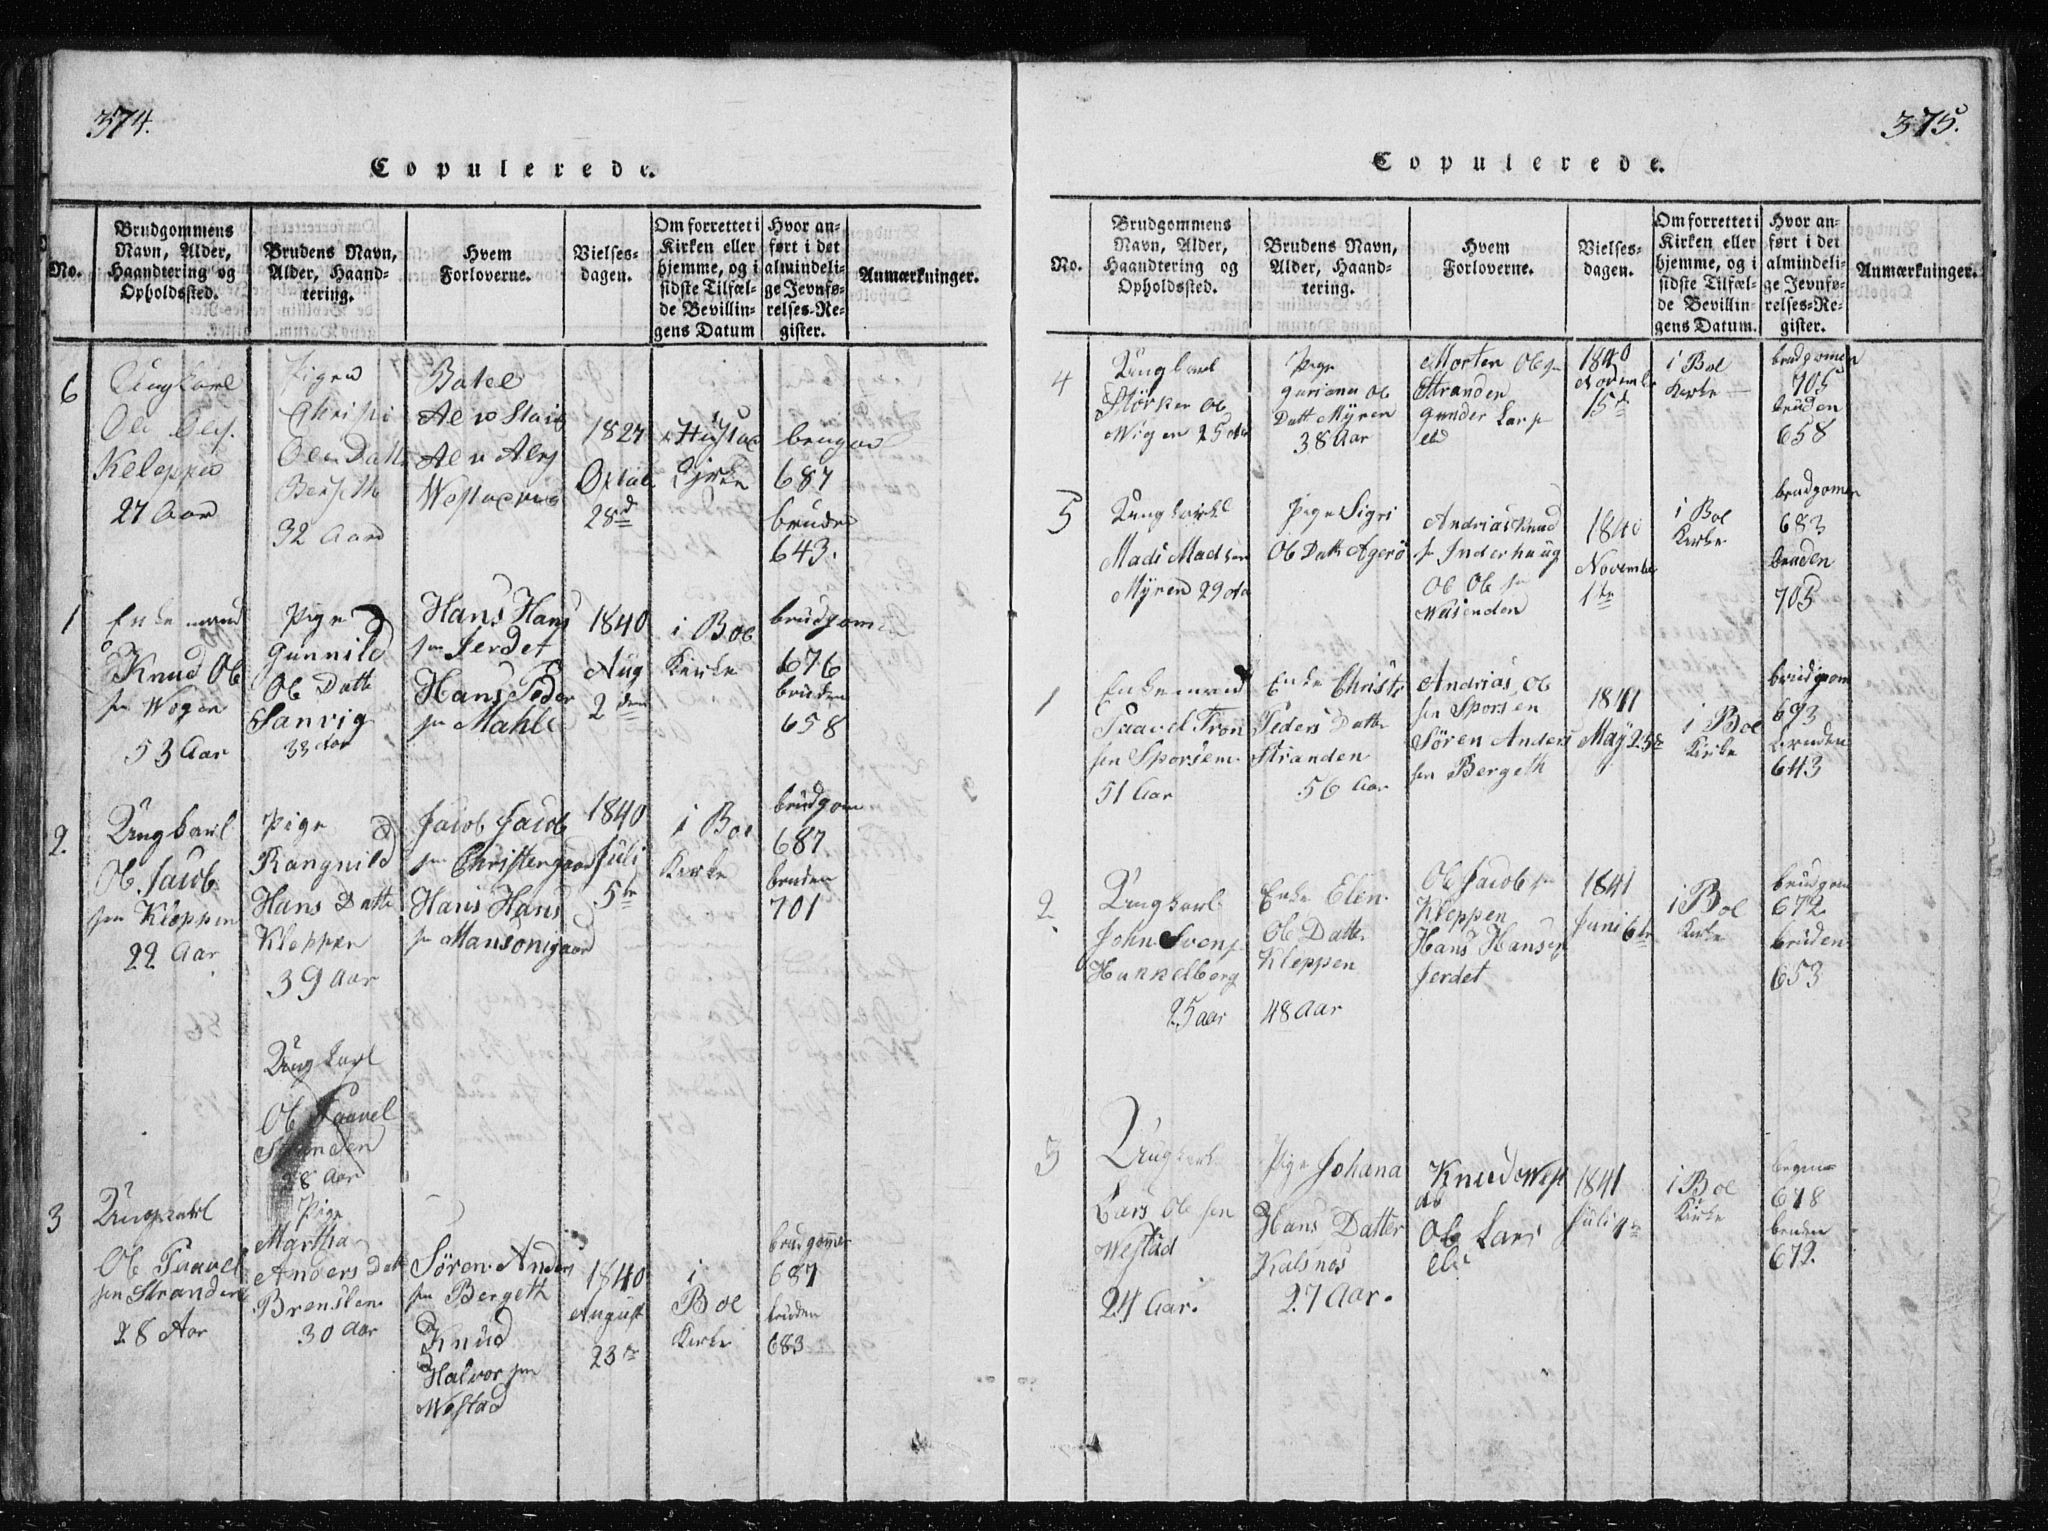 374.
Copulerede.
No.
Brudgommens
Navn, Alder,
Haandtering og
Opholdssted.
Brudens Navn,
Alder, Haand-
tering.
Hvem
Forloverne.
Vielses-
dagen.
Om forrettet i
Kirken eller
hjemme, og i
sidste Tilfæl-
de Bevillin-
gens Datum
Hvor an-
ført i det
almindeli-
ge Jevnfø-
relses-Re-
gister.
Anmærkninger.
6
Ungkarl
27 Aar
Pigen
32 Aar
1827
28d
687
brude
643.
1
Enkemand
Knud Ol
sen Wogen
53 Aar
Pige
Gunnild
Ol Datte
Sanvig
33 Aar
Hans Hans
sen Jerdet
Hans Peder
sen Mahle
1840
Aug
2den
i Boe
Kirke
brudgom
676
bruden
658
2.
Ungkarl
Ol Jacob
sen Kleppen
22 Aar
Pige
Rangnild
Hans Datte
Kleppen
39 Aar
Jacob Jacob
sen Christengaard
Hans Hans
sen Mansonigaard
1840
Juli
5te
i Boe
Kirke
brudgom
687
bruden
701
Ungkarl
Ol Paavel
Stranden
28 Aar
3
Ungkarl
Ol Paavel
sen Stranden
28 Aar
Pige
Martha
Anders Datt
Brensten
30 Aar
Søren Anders
sen Bergeth
Knud
Halvorsen
Westad
1840
August
23de
i
Boe
Kirke
brudgommen
687
bruden
683
375.
Copulerede.
No.
Brudgommens
Navn, Alder,
Haandtering og
Opholdssted.
Brudens Navn,
Alder, Haand-
tering.
Hvem
Forloverne.
Vielses-
dagen.
Om forrettet i
Kirken eller
hjemme, og i
sidste Tilfæl-
de Bevillin-
gens Datum.
Hvor an-
ført i det
almindeli-
ge Jevnfø-
relses-Re-
gister.
Anmærkninger.
4
Ungkarl
Størker Ol
Wigen 25 Aar
Pige
Guriana Ol
Datt Myren
38 Aar
Morten Ol sen
Stranden
Gunder Lars
1840
Novembe
15de
i Boe
Kirke
brudgomen
705
bruden
658
5
Ungkarl
Mads Madsen
Myren 29 Aar
Pige Sigri
Ol Datte Agerø
Andrias Knud
sen Inderhaug
Ol Ol sen
Wasenden
1840
November
1te
i Boe
Kirke
brudgomen
683
bruden
705
1
Enkemand
Paavel Tron
sen Sporsem
51 Aar
Enke Christi
Peders Datte
Stranden
56 Aar
Andrias Ol
sen Sporsen
Søren Anders
sen Bergeth
1841
May 25de
i Boe
Kirke
brudgom
693
bruden
643
2.
Ungkarl
John Svens
Hunkelberg
25 aar
Enke Elen
Ol Datte
Kleppen
48 Aar
Ol Jacob sen
Kleppen
Hans Hansen
Jerdet
1841
Juni 6te
i Boe
Kirke
brudgom
672
bruden
653
3
Ungkarl
Lars Ol sen
Westad
24 Aar.
Pige Johana
Hans Datter
Kalsnes
27 Aar.
Knud West
ad
Ol Lars
1841
Juli 4de
i Boe
Kirke
678
bruden
672.